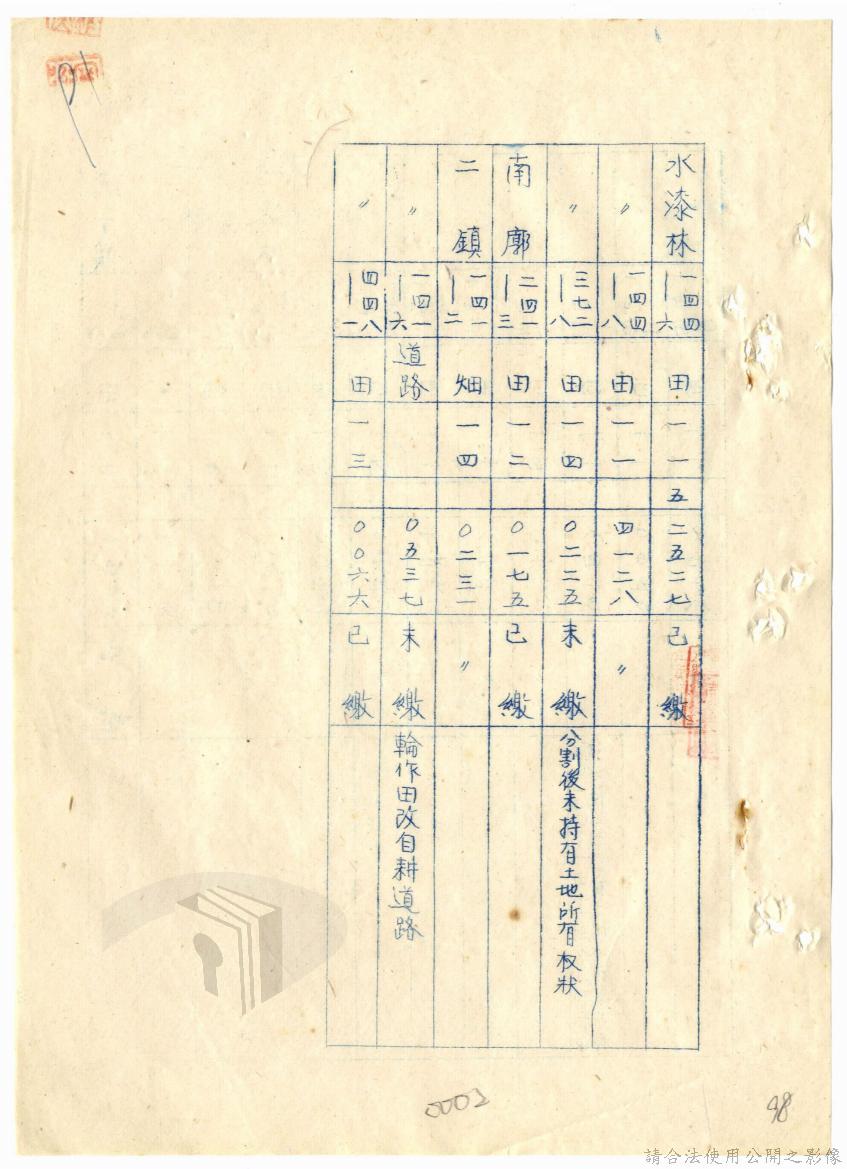 水漆林 一四四—六 田 一一 五 二五二七 已繳
〃 一四四—八 田 一一 四一二八 〃
〃 三七二—八 田 一四 〇二二五 未繳 分割後未持有土地所有权狀
南廓 二四一—三 田 一二 〇一七五 已繳
二鎮 一四一—二 畑 一四 〇二三一 〃
〃 一四一—六 道路 〇五三七 未繳 輪作田改自耕道路
〃 四四八—一 田 一三 〇〇六六 已繳
0002
98
請合法使用公開之影像